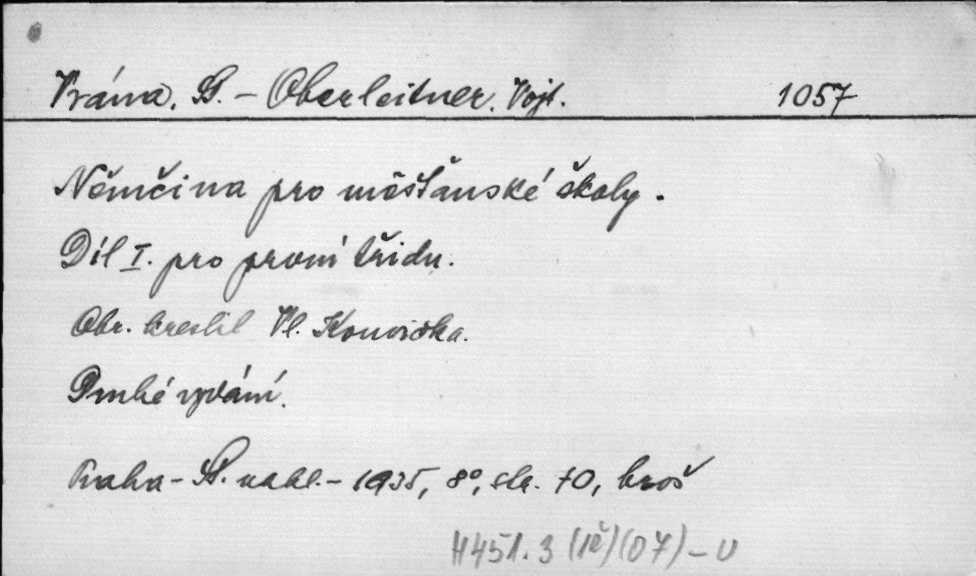 Vrána, St. – Oberleitner, Vojt. 1057
Němčina pro měšťanské školy.
Díl I. pro první třídu.
Obr. kreslil Vl. Konvička.
Druhé vydání.
Praha – St. nakl. – 1935, 8°, str. 70, brož
H451.3 (1č)(07) – U